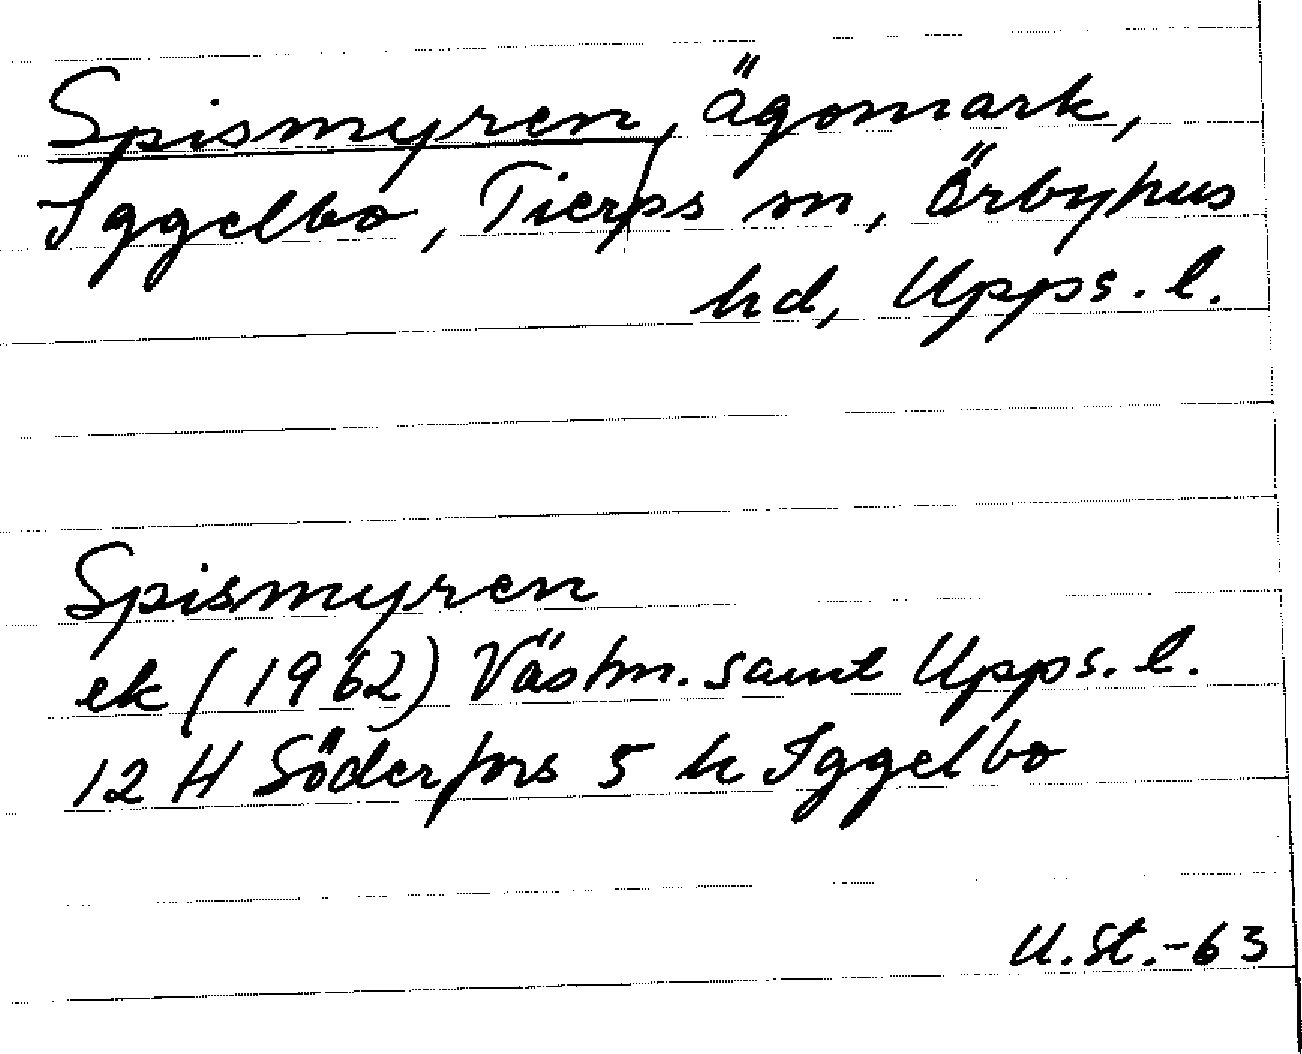 Spismyren, ägomark,
Iggelbo, Tierps sn, Örbyhus
hd, Upps. l.
Spismyren
ek (1962) Västm. samt Upps. l.
12 H Söderfors 5 h Iggelbo
U.St.-63